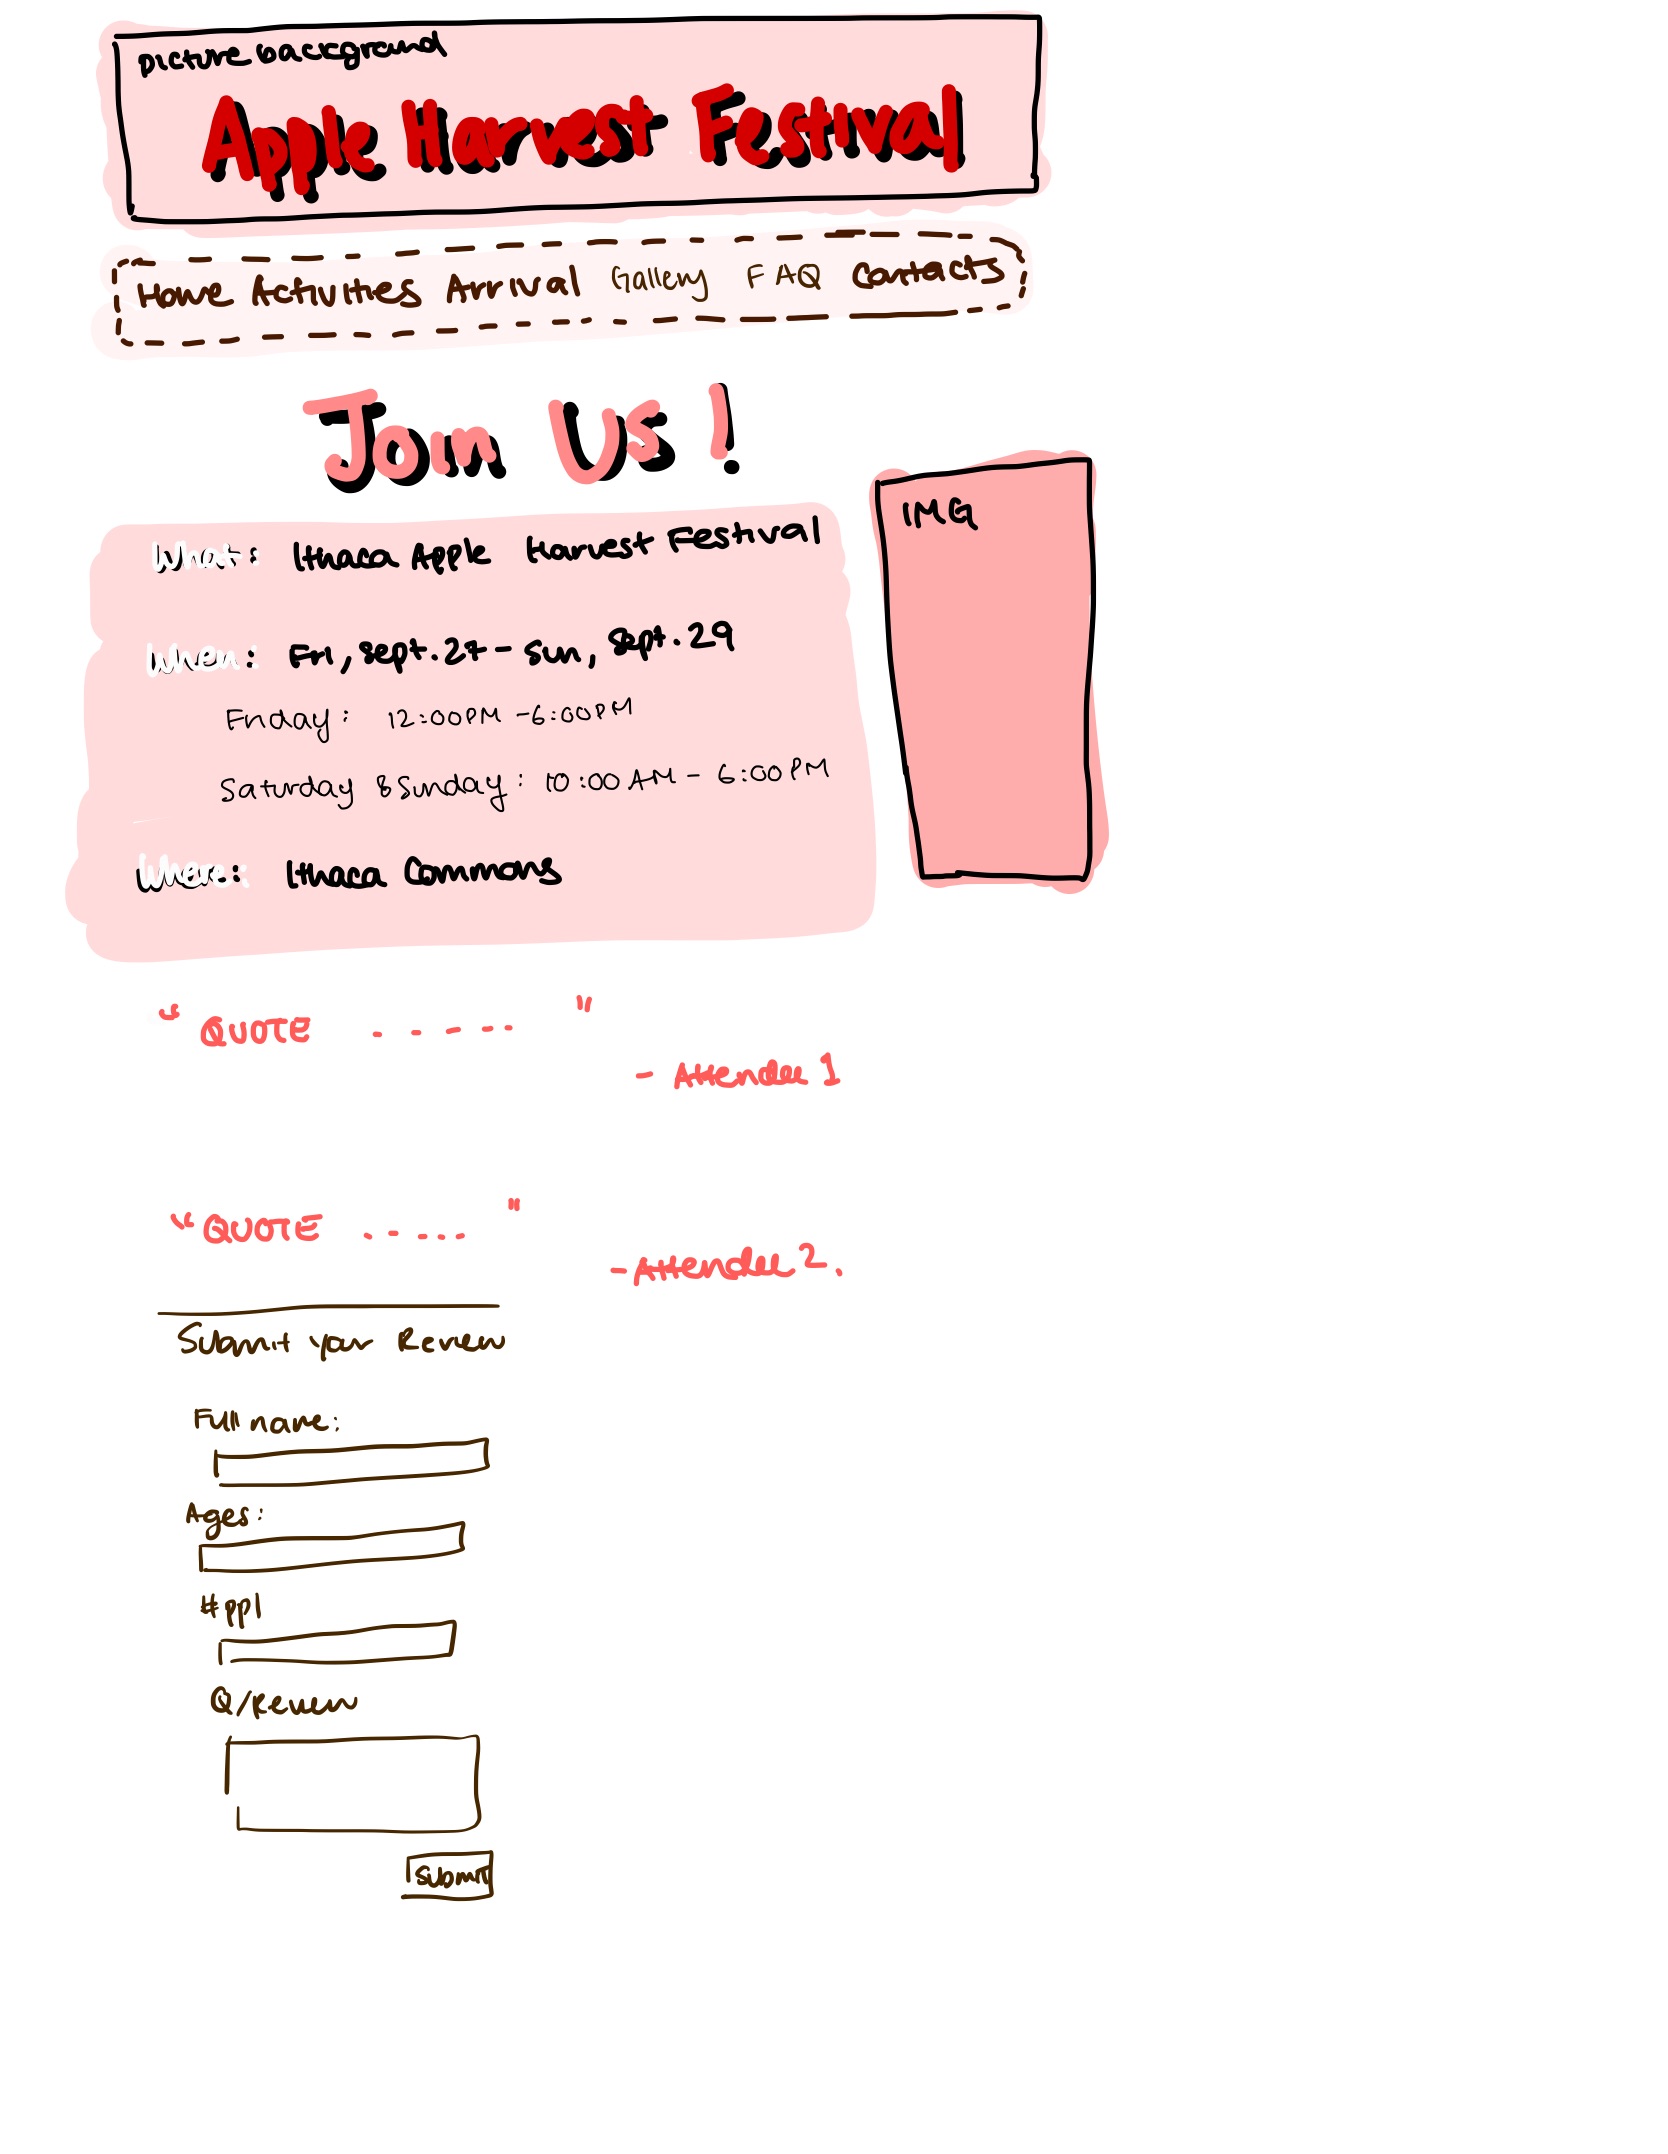 picture background
Apple Harvest Festival
Home Activities Arrival Gallery FAQ Contacts
Join Us!
What: Ithaca Apple Harvest Festival
When: Fri, Sept. 27 - Sun, Sept. 29
Friday: 12:00PM - 6:00PM
Saturday & Sunday: 10:00 AM - 6:00 PM
Where: Ithaca Commons
IMG
"QUOTE ....."
- Attendee 1
"QUOTE ....."
- Attendee 2.
Submit your Review
Full name:
Ages:
#ppl
Q/Review
Submit